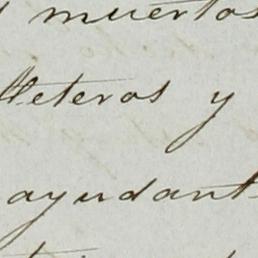 muertos
lleteros y
ayudant